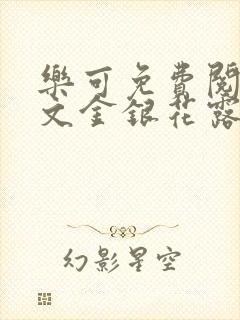 樂可免費閱
文金銀花露
幻影星空